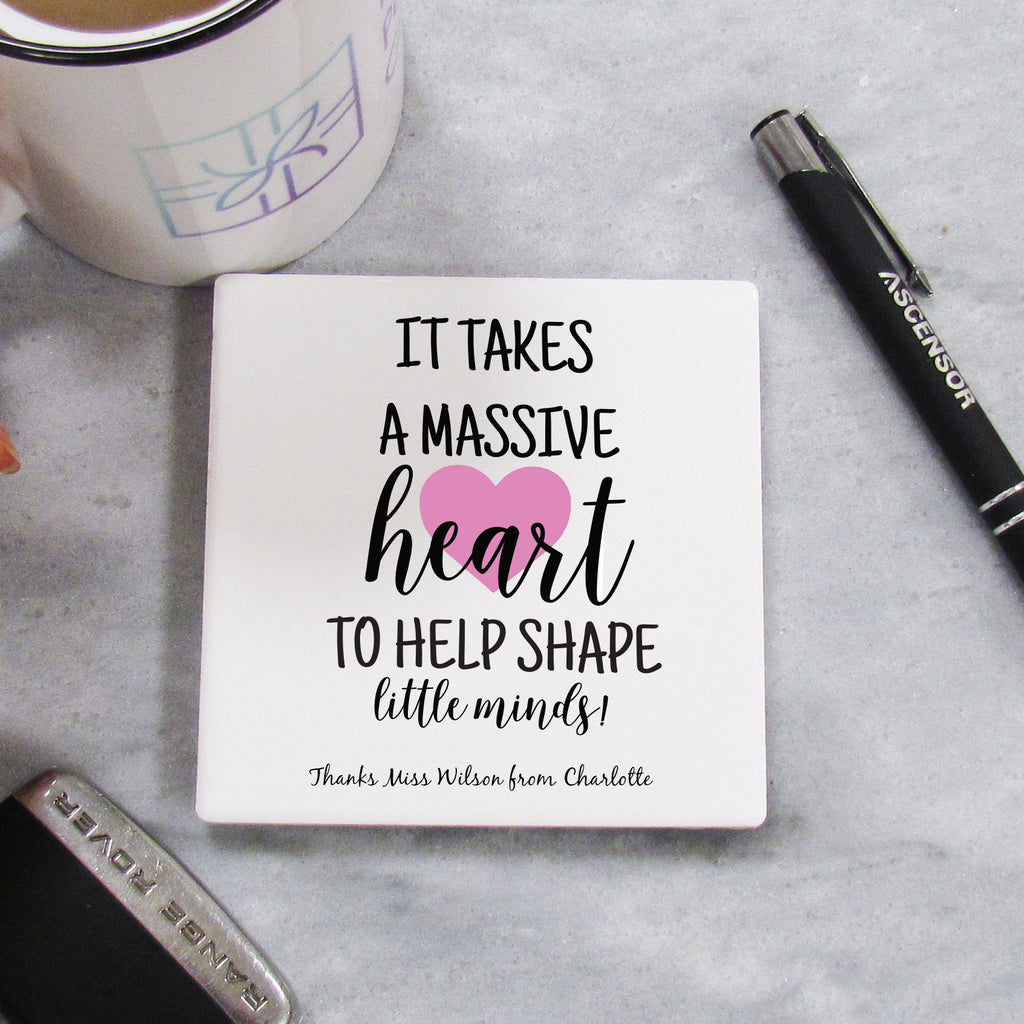 IT TAKES
A MASSIVE
heart
TO HELP SHAPE
little minds!
Thanks Miss Wilson from Charlotte
ASCENSOR
RANGE ROVER